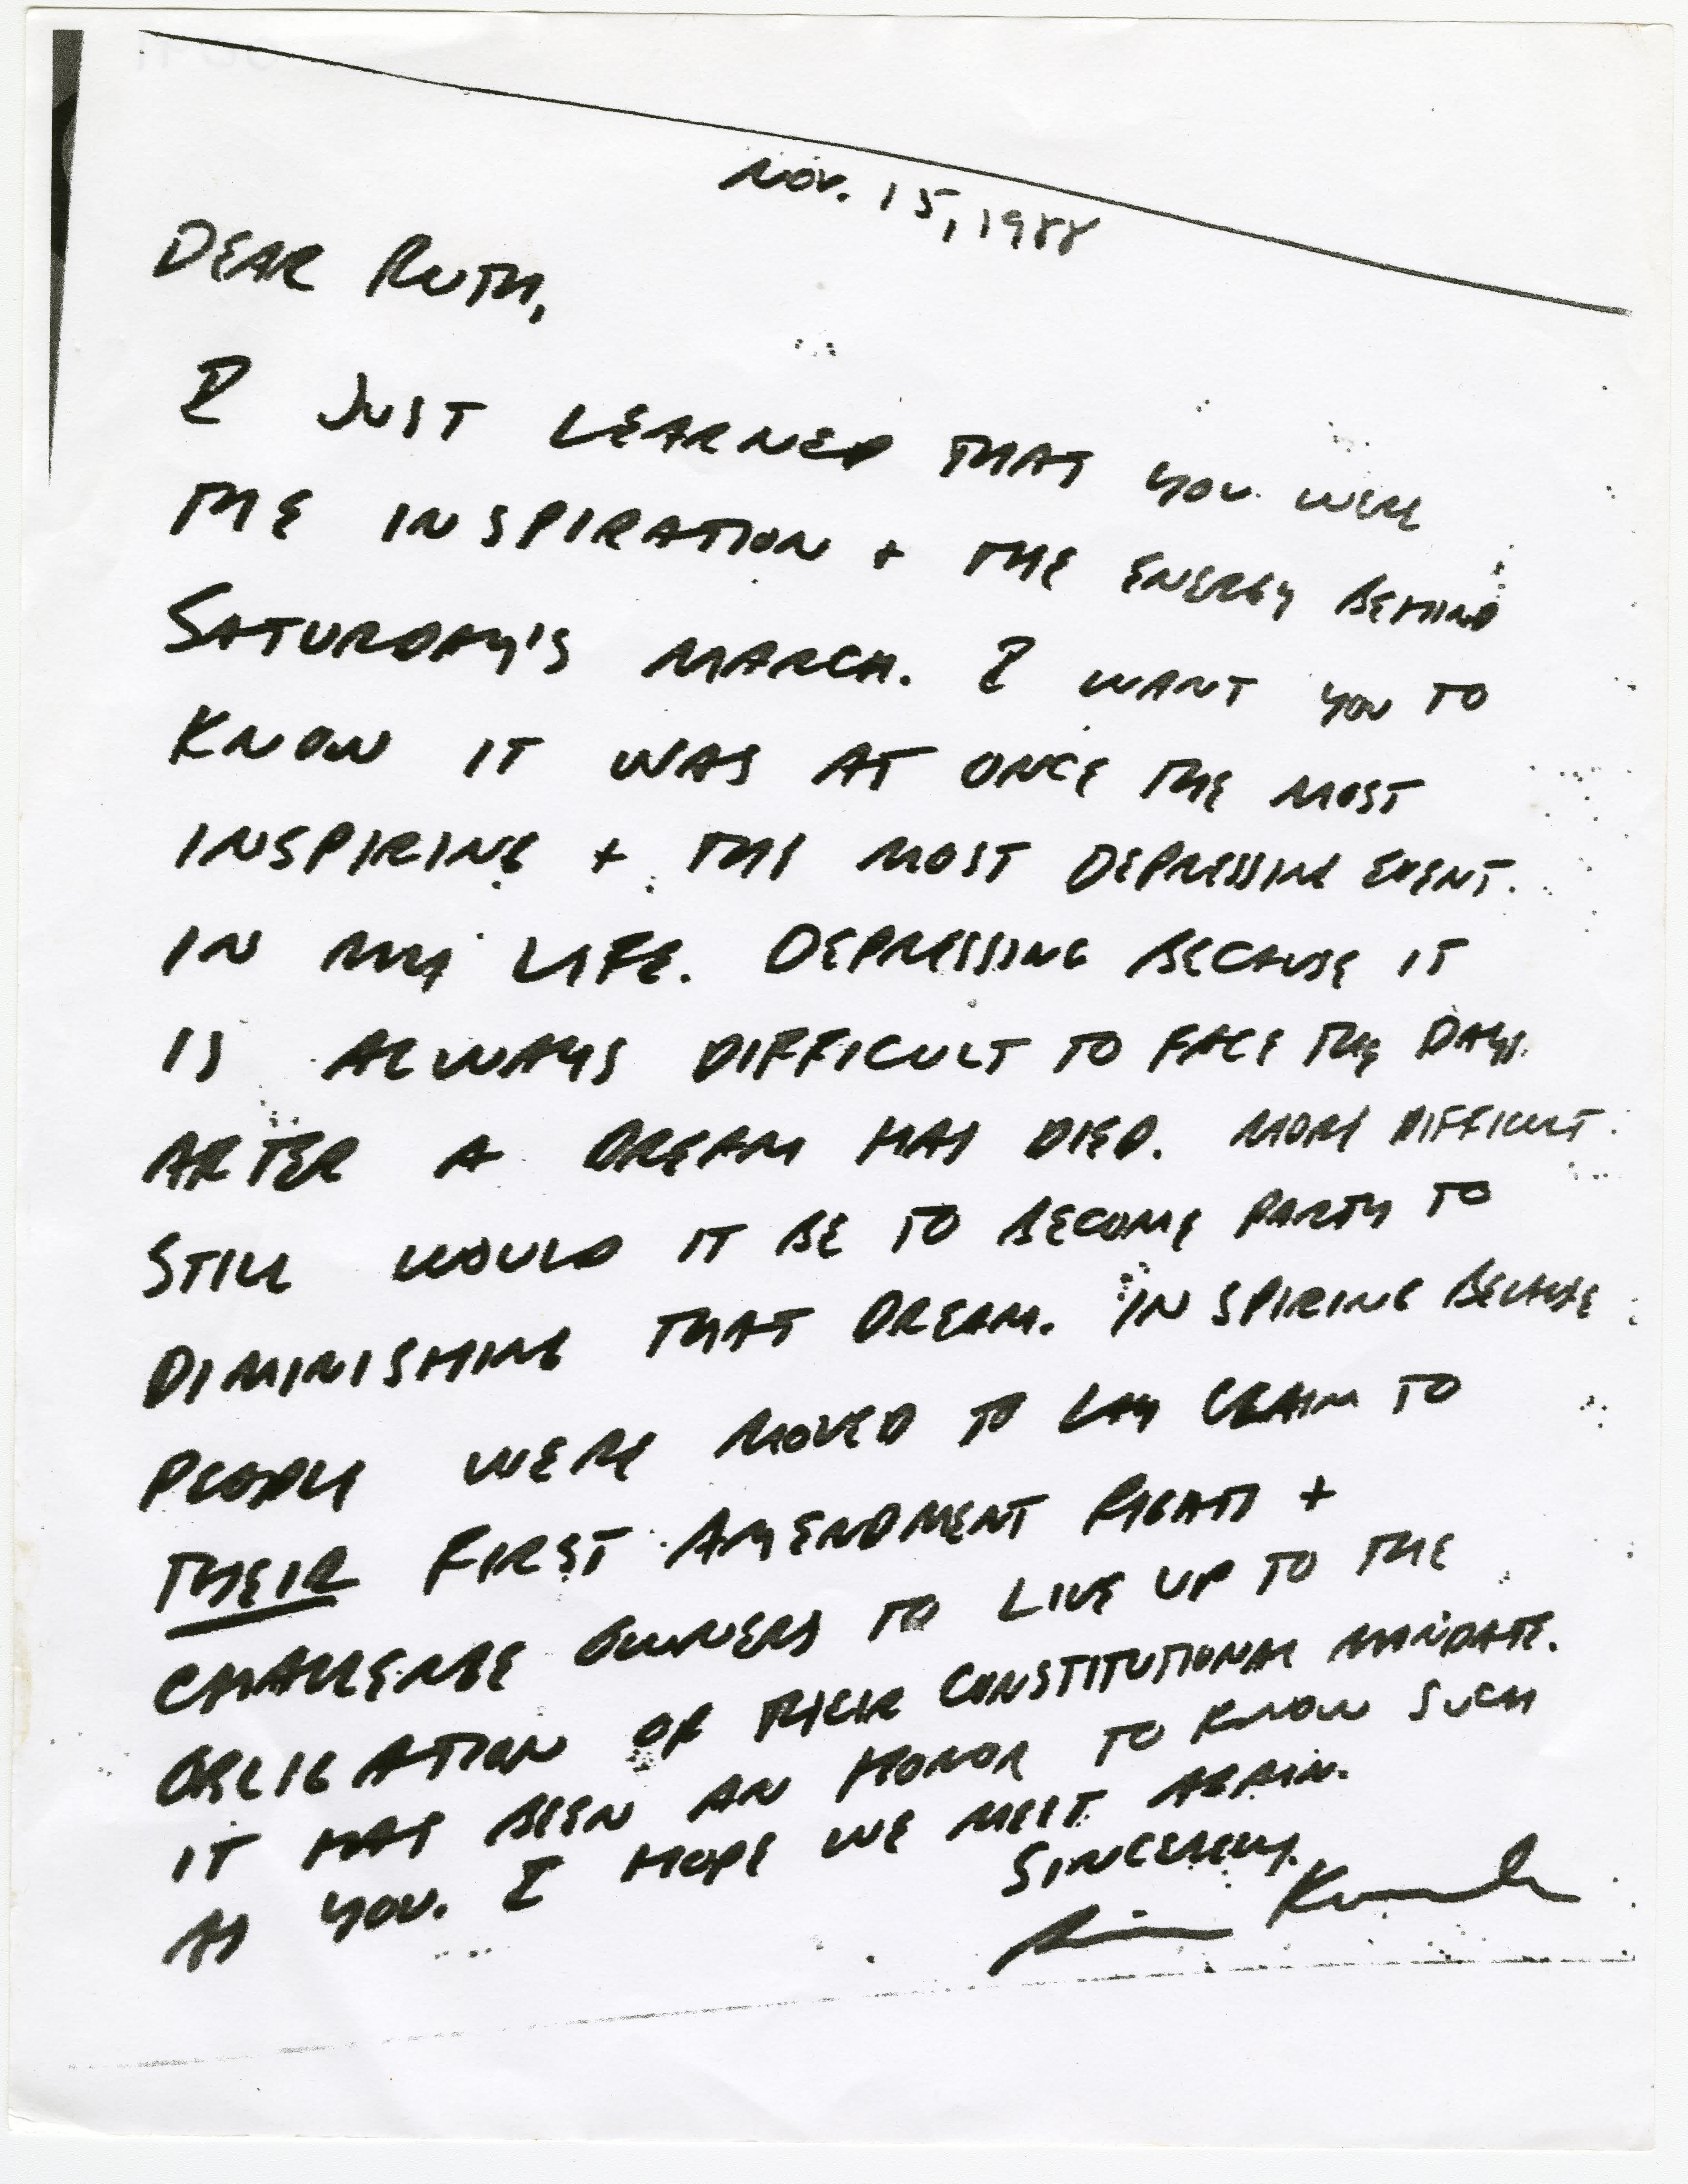 NOV. 15, 1988
DEAR RUTH,
I JUST LEARNED THAT YOU WERE
THE INSPIRATION + THE ENERGY BEHIND
SATURDAY'S MARCH. I WANT YOU TO
KNOW IT WAS AT ONCE THE MOST
INSPIRING + THE MOST DEPRESSING EVENT
IN MY LIFE. DEPRESSING BECAUSE IT
IS ALWAYS DIFFICULT TO FACE THE DAYS
AFTER A DREAM HAS DIED. MORE DIFFICULT
STILL WOULD IT BE TO BECOME PARTY TO
DIMINISHING THAT DREAM. INSPIRING BECAUSE
PEOPLE WERE MOVED TO LAY CLAIM TO
THEIR FIRST AMENDMENT RIGHTS +
CHALLENGE OWNERS TO LIVE UP TO THE
OBLIGATION OF THEIR CONSTITUTIONAL MANDATE.
IT HAS BEEN AN HONOR TO KNOW SUCH
AS YOU. I HOPE WE MEET AGAIN.
SINCERELY,